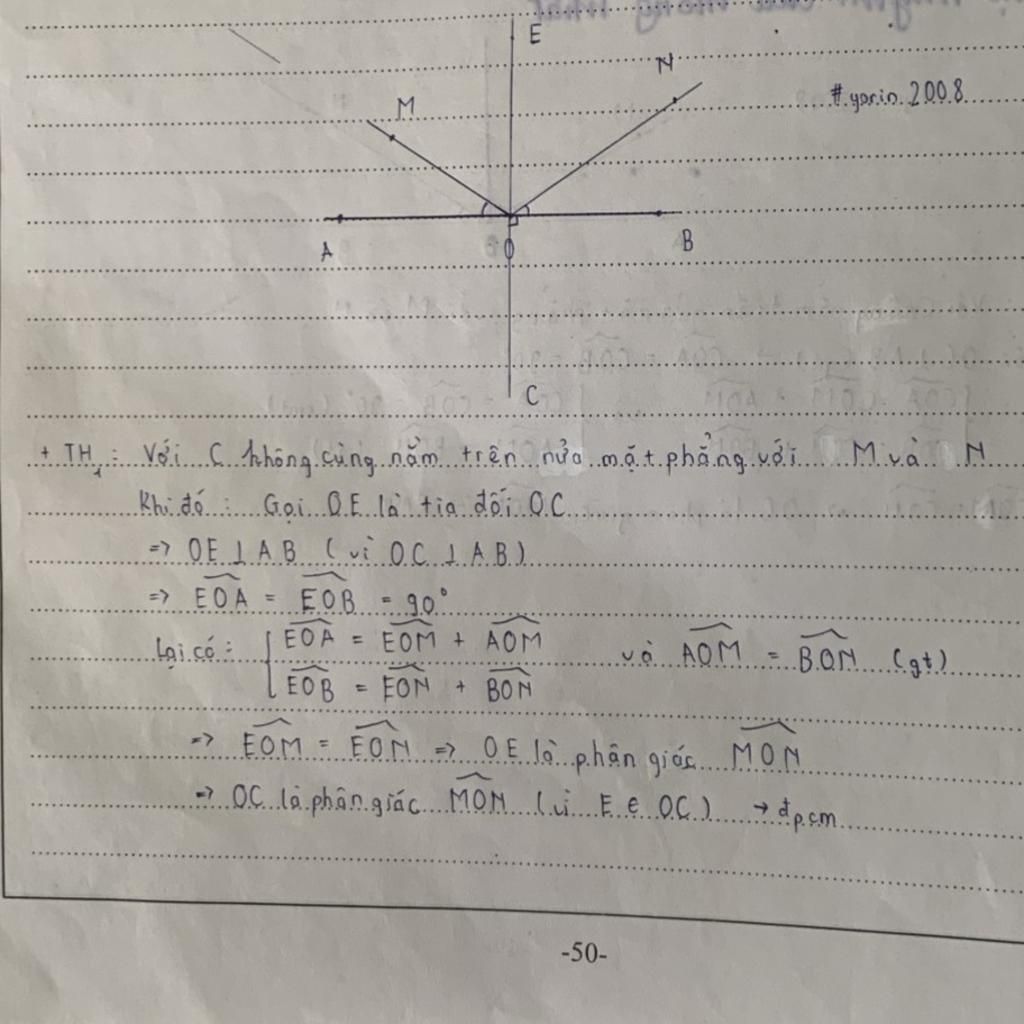 E
N
M
#yorin.2008
A
O
B
C
+ TH₁: Với C không cùng nằm trên nửa mặt phẳng với M và N
Khi đó: Gọi OE là tia đối OC
=> OE ⊥ AB (vì OC ⊥ AB)
=> \widehat{EOA} = \widehat{EOB} = 90°
Lại có: { \widehat{EOA} = \widehat{EOM} + \widehat{AOM} và \widehat{AOM} = \widehat{BON} (gt)
\widehat{EOB} = \widehat{EON} + \widehat{BON}
=> \widehat{EOM} = \widehat{EON} => OE là phân giác \widehat{MON}
=> OC là phân giác \widehat{MON} (vì E ∈ OC) → đpcm
-50-